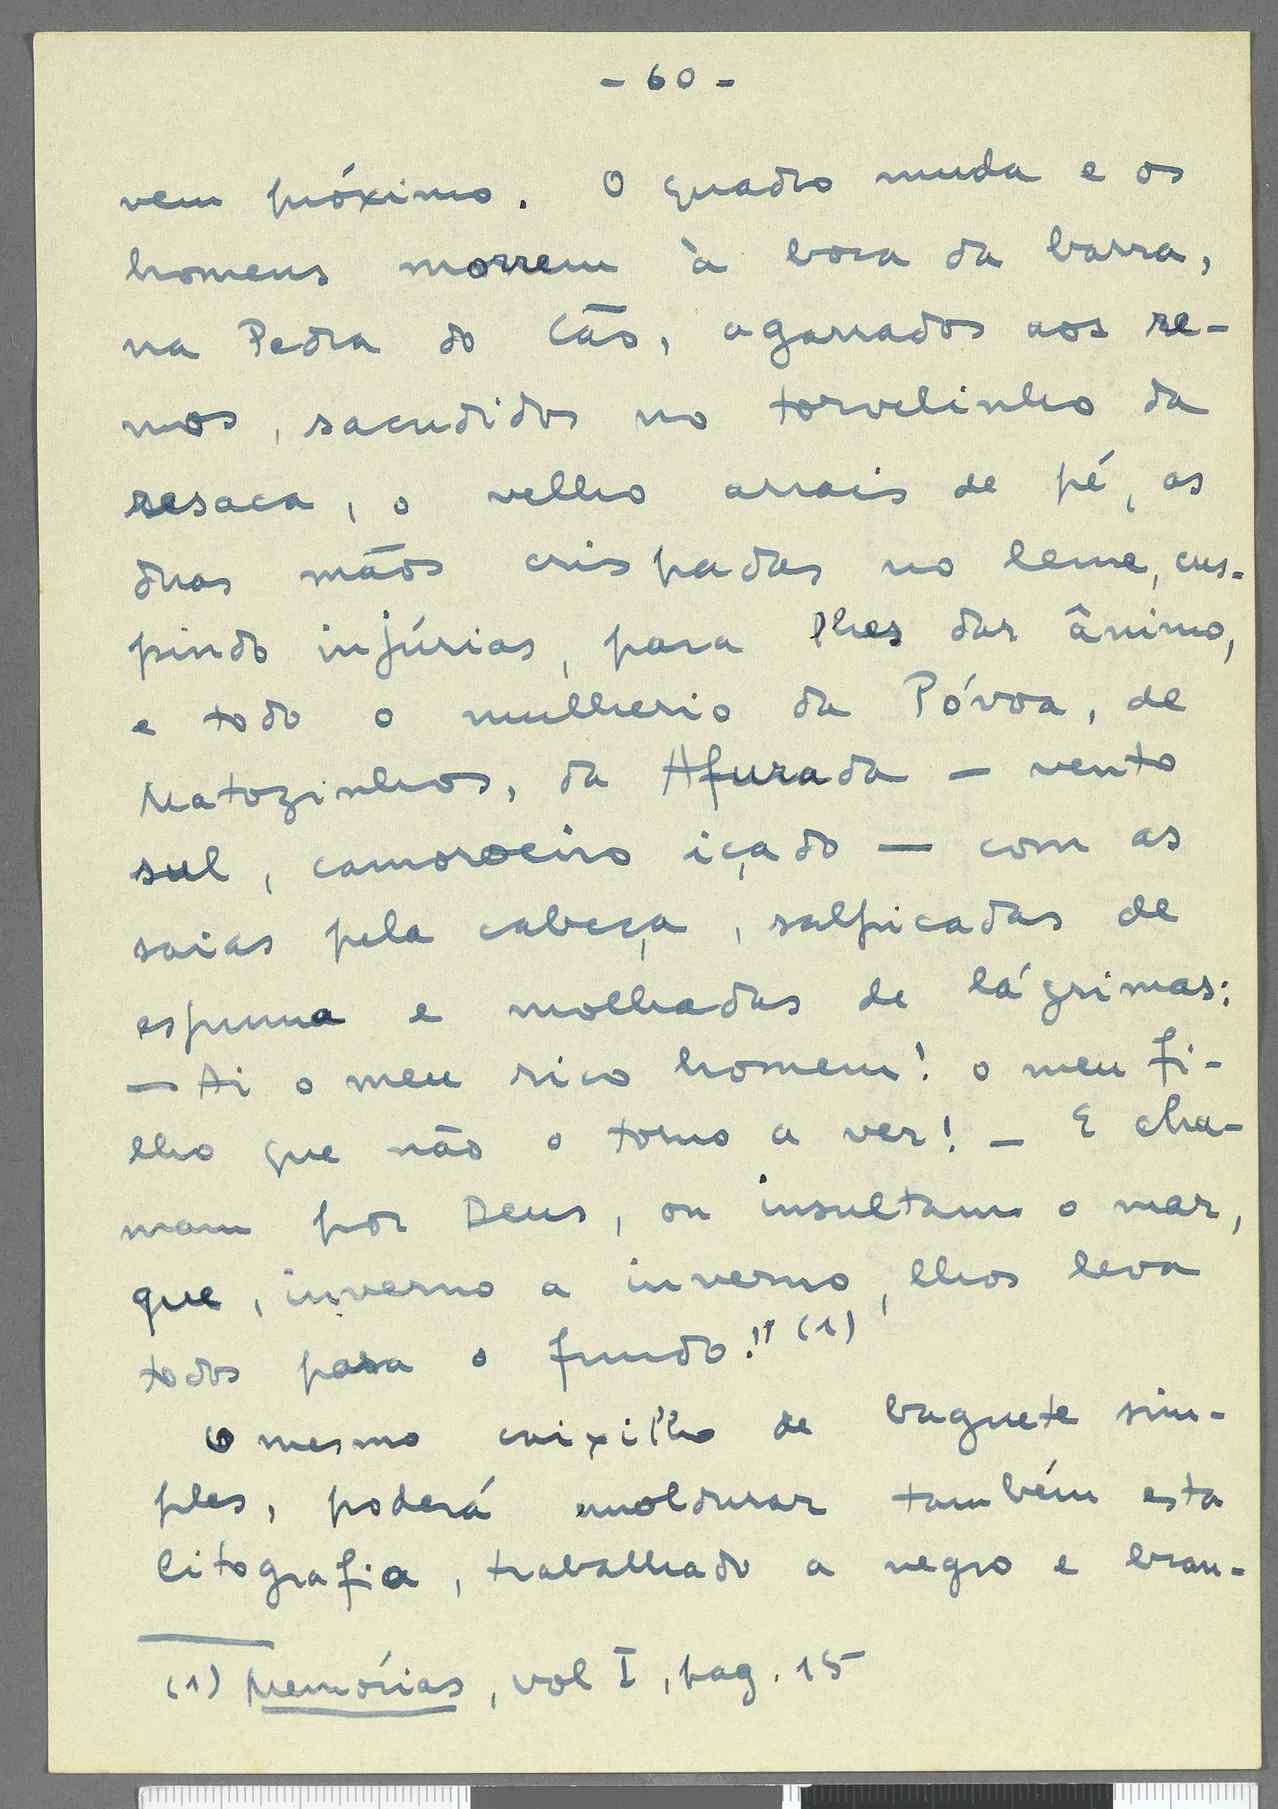 - 60 -
vem próximo. O quadro muda e os
homens morrem à boca da barra,
na Pedra do Cão, agarrados aos re-
mos, sacudidos no torvelinho da
resaca, o velho arrais de pé, as
duas mãos crispadas no leme, cus-
pindo injúrias, para lhes dar ânimo,
e todo o mulherio da Póvoa, de
Matozinhos, da Afurada — vento
sul, camaroeiro içado — com as
saias pela cabeça, salpicadas de
espuma e molhadas de lágrimas:
— Ai o meu rico homem! o meu fi-
lho que não o torno a ver! — E cha-
mam por Deus, ou insultam o mar,
que, inverno a inverno, lhos leva
todos para o fundo!" (1)
O mesmo caixilho de baguete sim-
ples, poderá emoldurar também esta
litografia, trabalhado a negro e bran-
(1) Memórias, vol I, pag. 15